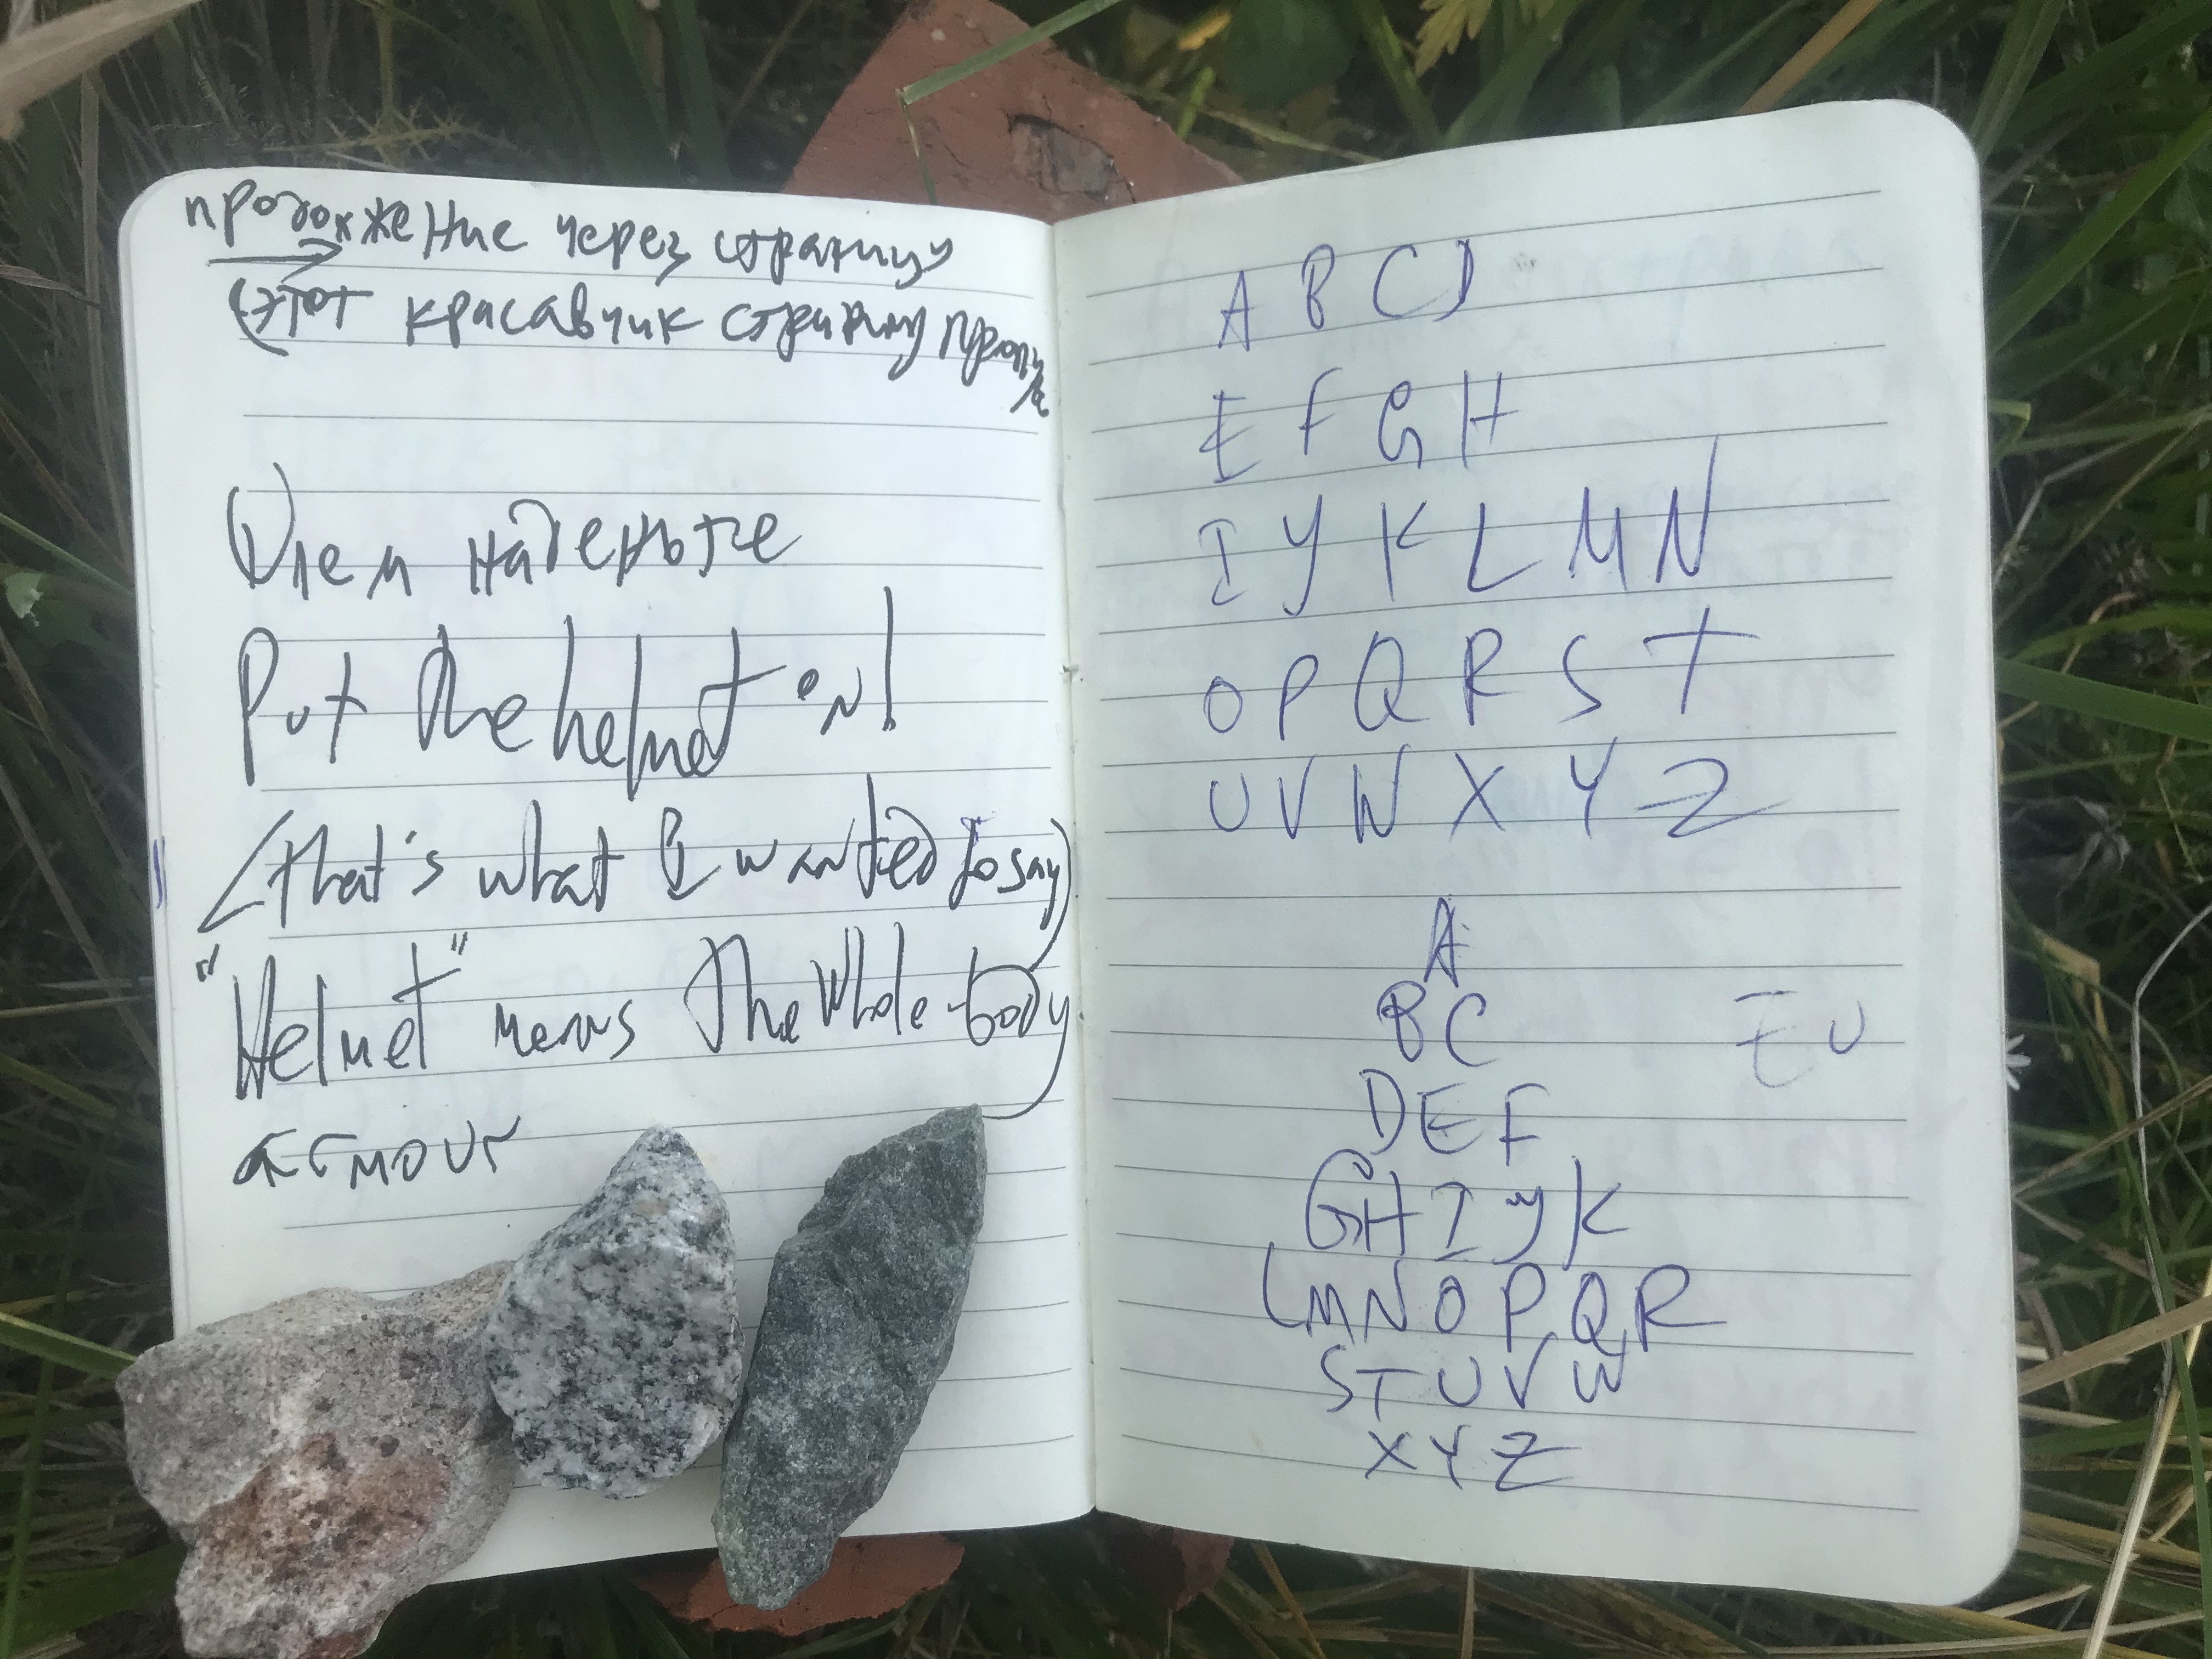 продожжение через страницу
(этот красавчик страницу пропу
Шлем наденьте
Put the helmet on!
(that's what I wanted to say)
"Helmet" means the whole-body
armour
A B C D
E F G H
I Y K L M N
O P Q R S T
U V W X Y Z
A
B C
E U
D E F
G H I Y K
L M N O P Q R
S T U V W
X Y Z